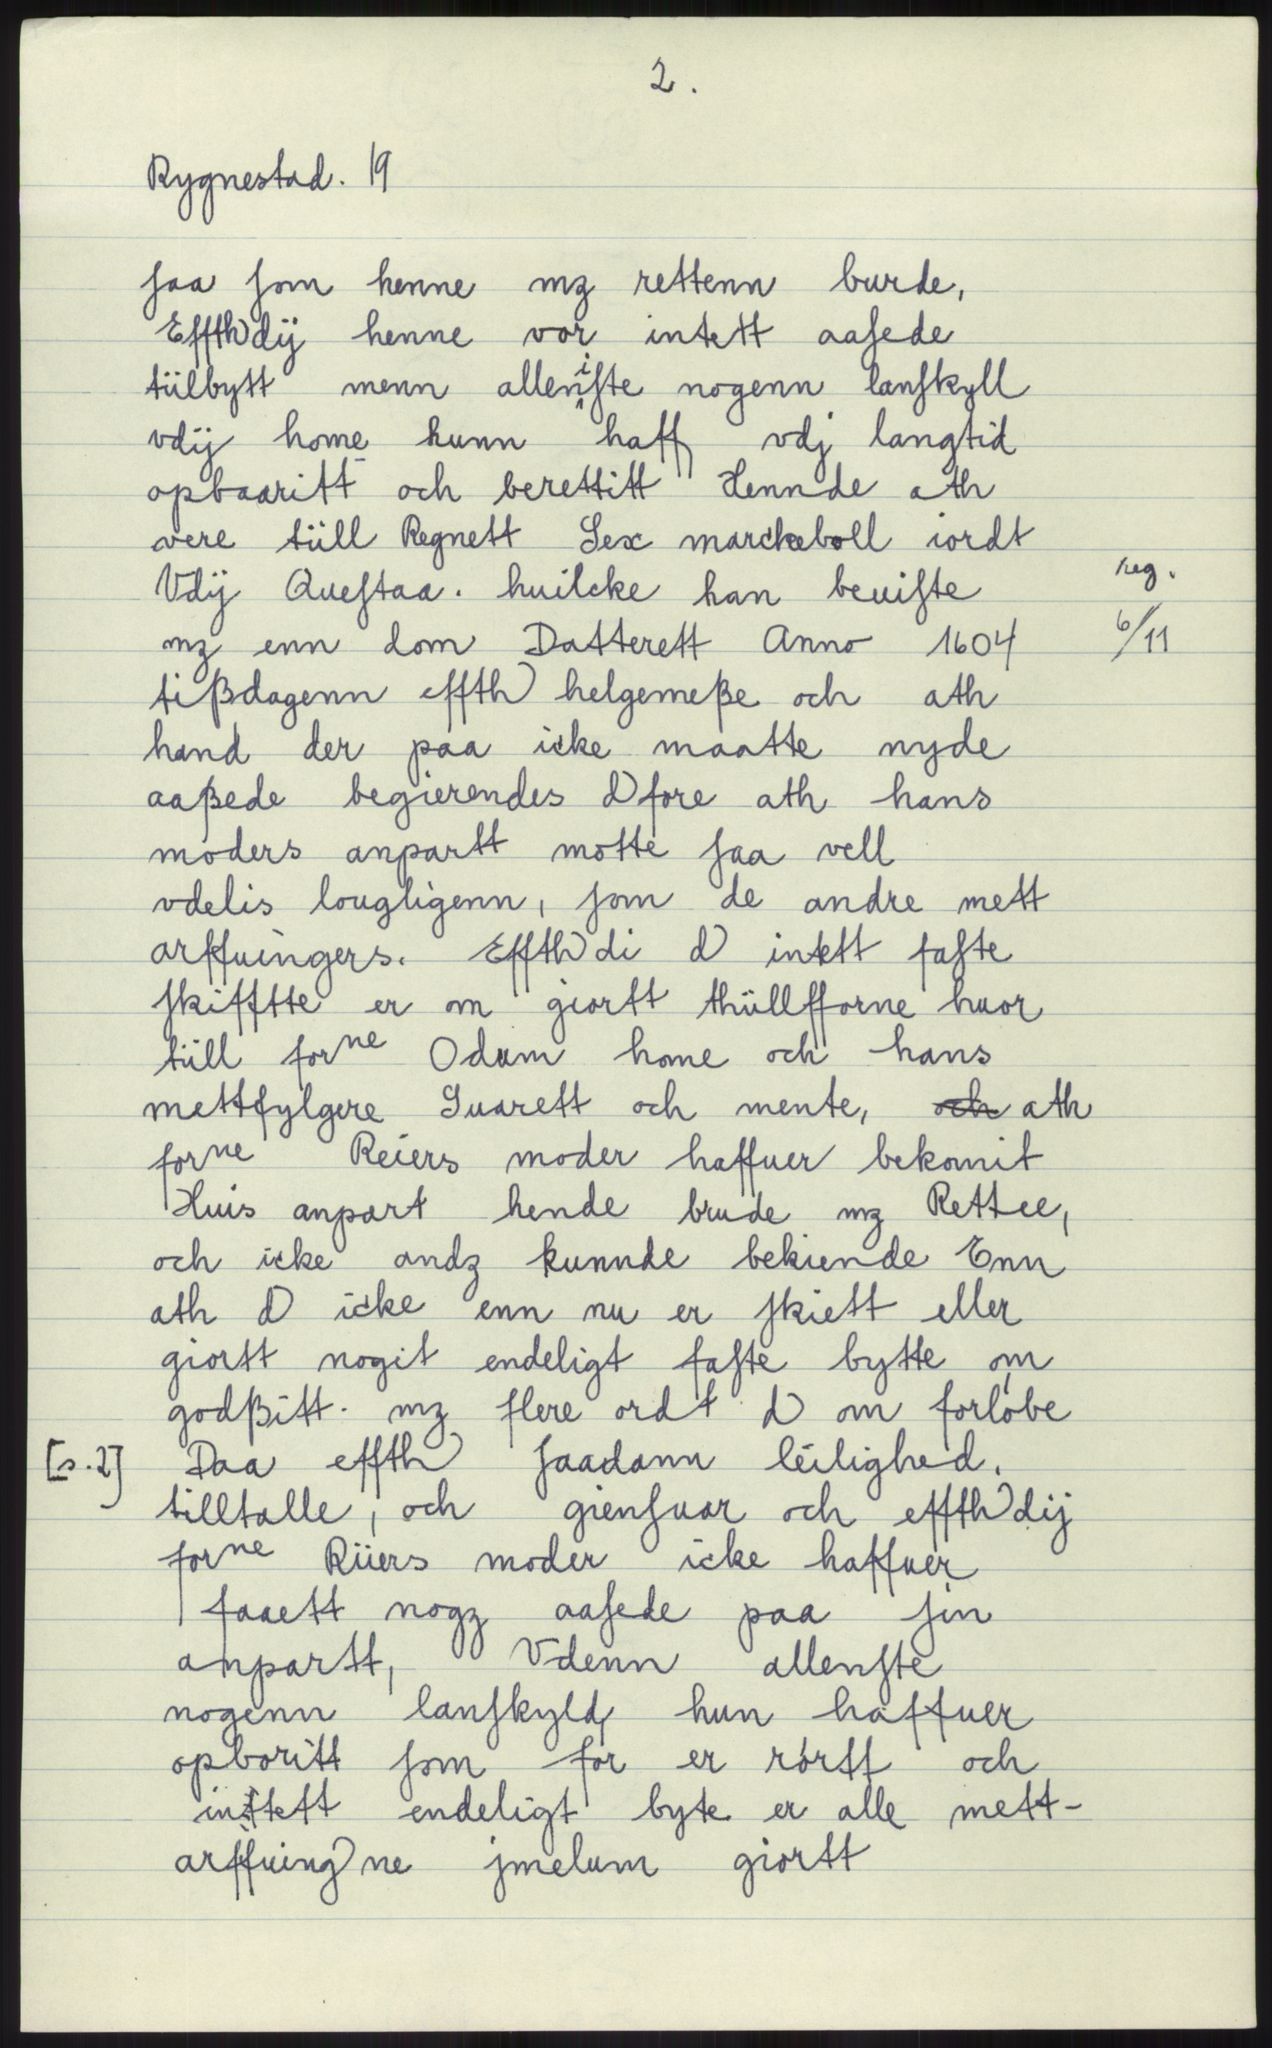 2.
Rygnestad. 19
saa som henne mz rettenn burde,
Effth dij henne vor intett aasede
tülbytt menn alleniste nogenn lanskyll
vdij home hunn haff vdj langtid
opbaaritt och berettitt Hennde ath
vere tüll Regnett Sex marckeboll iordt
Vdij Questaa. huilcke han beuiste
reg.
mz enn dom Datterett Anno 1604
6/11
tißdagenn effth helgemeße och ath
hand der paa icke maatte nyde
aaßede begierendes D fore ath hans
moders anpartt motte saa vell
vdelis lougligenn, som de andre mett
arffuingers. Effth di D intett faste
skifftte er om giortt thüllfforne huor
tüll forne Odum home och hans
mettfylgere Suarett och mente, och ath
forne Reiers moder haffuer bekomit
Huis anpart hende brude mz Rettee,
och icke andz kunnde bekiende Enn
ath D icke enn nu er skiett eller
giortt nogit endeligt faste bytte om
godßitt. mz flere ordt D om forløbe
[s.2] Daa effth saadann leilighed.
tilltalle, och giensuar och effth dij
forne Rüers moder icke haffuer
faaett nogz aasede paa sin
anpartt, Vdenn allenste
nogenn lanskyld hun haffuer
opboritt som før er rørtt och
inttett endeligt byte er alle mett-
arffuing ne jmelum giortt